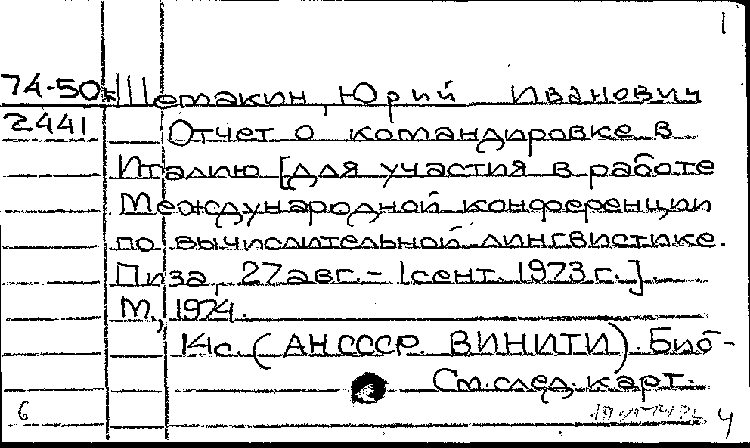 1
74-50: Шемакин, Юрий Иванович
2441 Отчет о командировке в
Италию [для участия в работе
Международной конференции
по вычислительной лингвистике.
Пиза, 27 авг. - 1 сент. 1973 г.].
М., 1974.
14 с. (АН СССР. ВИНИТИ). Биб-
См. след. карт.
6
4